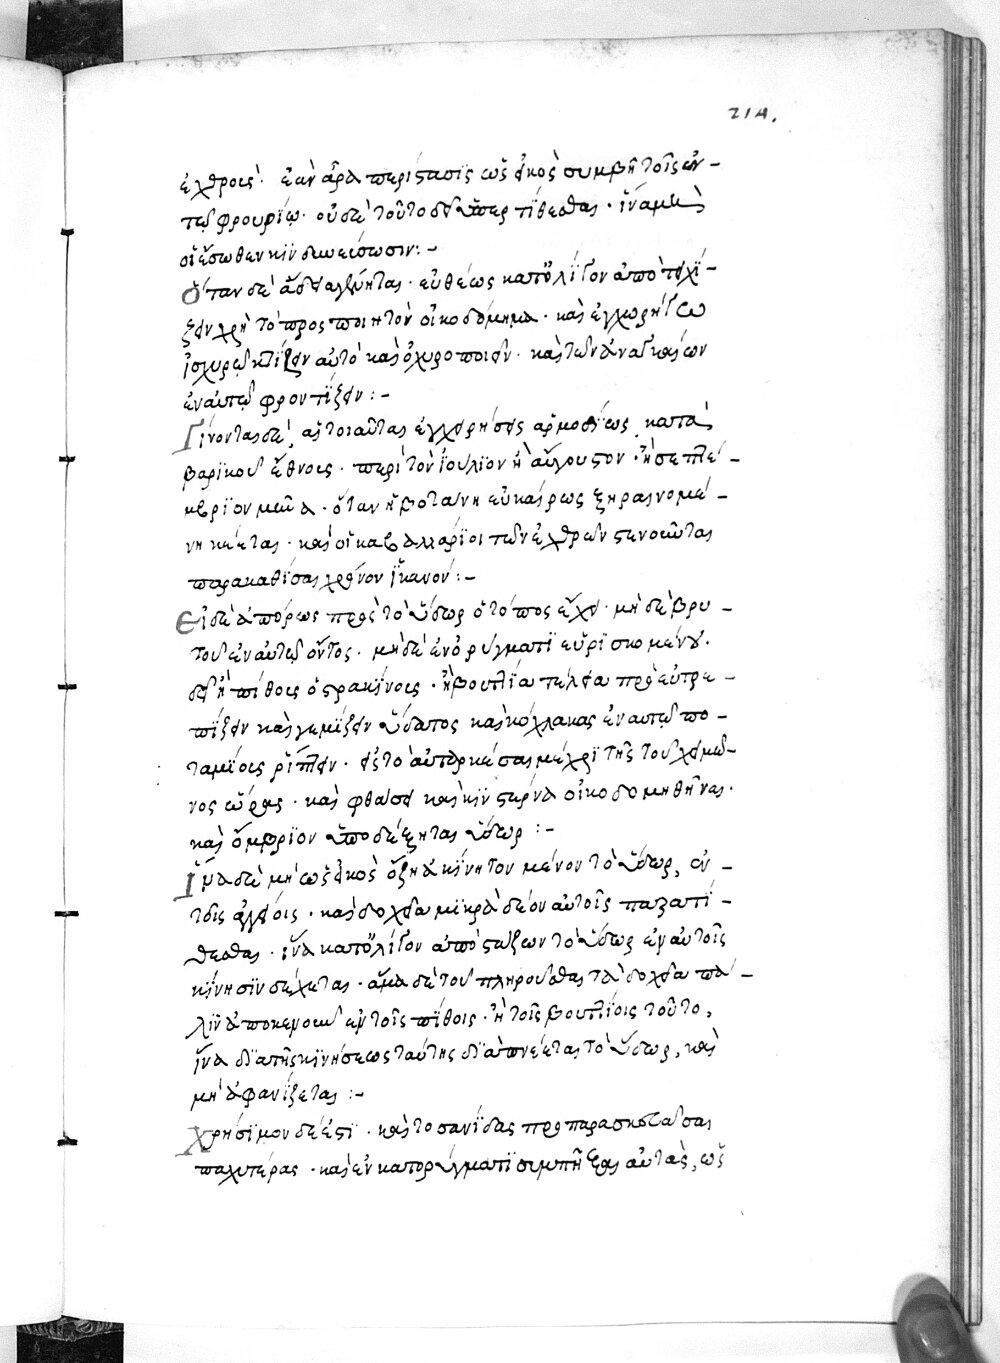 214.
ἐχθροὺς· ἐὰν ἄρα περίστασις ὡς εἰκὸς συμβῇ τοῖς ἐν-
τῷ φρουρίῳ· οὐδὲ τοῦτο δὲ ὕπερτίθεσθαι· ἵνα μὲ
οἱ ἔσωθεν κινδυνεύσωσιν:-
Ὅταν δὲ ἄδεια γένηται· εὐθέως κατ' ὀλίγον ἀποτειχί-
ζειν χρὴ τὸ προσποιητὸν οἰκοδόμημα· καὶ ἐγχωρήγῳ
ἰσχυρῷ κτίζειν αὐτὸ καὶ ὀχυροποιεῖν· καὶ τῶν ἀναγκαίων
ἐν αὐτῷ φροντίζειν:-
Γίνονται δὲ αἱ τοιαῦται ἐγχειρήσεις ἁρμοδίως κατὰ
βαρικοῦ ἔθνους· περὶ τὸν ἰούλιον ἢ αὔγουστον· ἢ σεπτέ-
μβριον μῆνα· ὅταν ἡ βοτάνη εὐκαίρως ξηραινομέ-
νη καίεται· καὶ οἱ καβαλλάριοι τῶν ἐχθρῶν στενοῦνται
παρακαθίσαι χρόνον ἱκανόν:-
Εἰ δὲ ἀπόρως πρὸς τὸ ὕδωρ ὁ τόπος ἔχει· μὴ δὲ βρυ-
τοῦ ἐν αὐτῷ ὄντος· μὴ δὲ ἐν ὀρύγματι εὑρισκομένου·
δεῖ ἢ πίθους ὀστρακίνους· ἢ βουτία τέλεια προευτρε-
πίζειν καὶ γεμίζειν ὕδατος καὶ κόχλακας ἐν αὐτῷ πο-
ταμίους ῥίπτειν· εἰς τὸ αὐταρκέσαι μέχρι τῆς τοῦ χειμῶ-
νος ὥρας· καὶ φθάσει καὶ κινστέρνα οἰκοδομηθῆναι·
καὶ ὄμβριον ὑποδέξηται ὕδωρ:-
Ἵνα δὲ μὴ ὡς εἰκὸς ὄζῃ ἀκίνητον μένον τὸ ὕδωρ, ἐν-
τοῖς ἀγγείοις· καὶ δοχεῖα μικρὰ δέον αὐτοῖς παρατί-
θεσθαι· ἵνα κατ' ὀλίγον ἀποστάζων τὸ ὕδωρ ἐν αὐτοῖς
κίνησιν δέχεται· ἅμα δὲ τοῦ πληροῦσθαι τὰ δοχεῖα πά-
λιν ἀποκενοῦν ἐν τοῖς πίθοις· ἢ τοῖς βουτίοις τοῦτο,
ἵνα διὰ τῆς κινήσεως ταύτης διαπνέεται τὸ ὕδωρ, καὶ
μὴ ἀφανίζεται:-
Χρήσιμον δέ ἐστι· καὶ τὸ σανίδας προπαρασκευάσαι
παχυτέρας· καὶ ἐν κατορύγματι συμπῆξαι αὐτὰς, ὡς